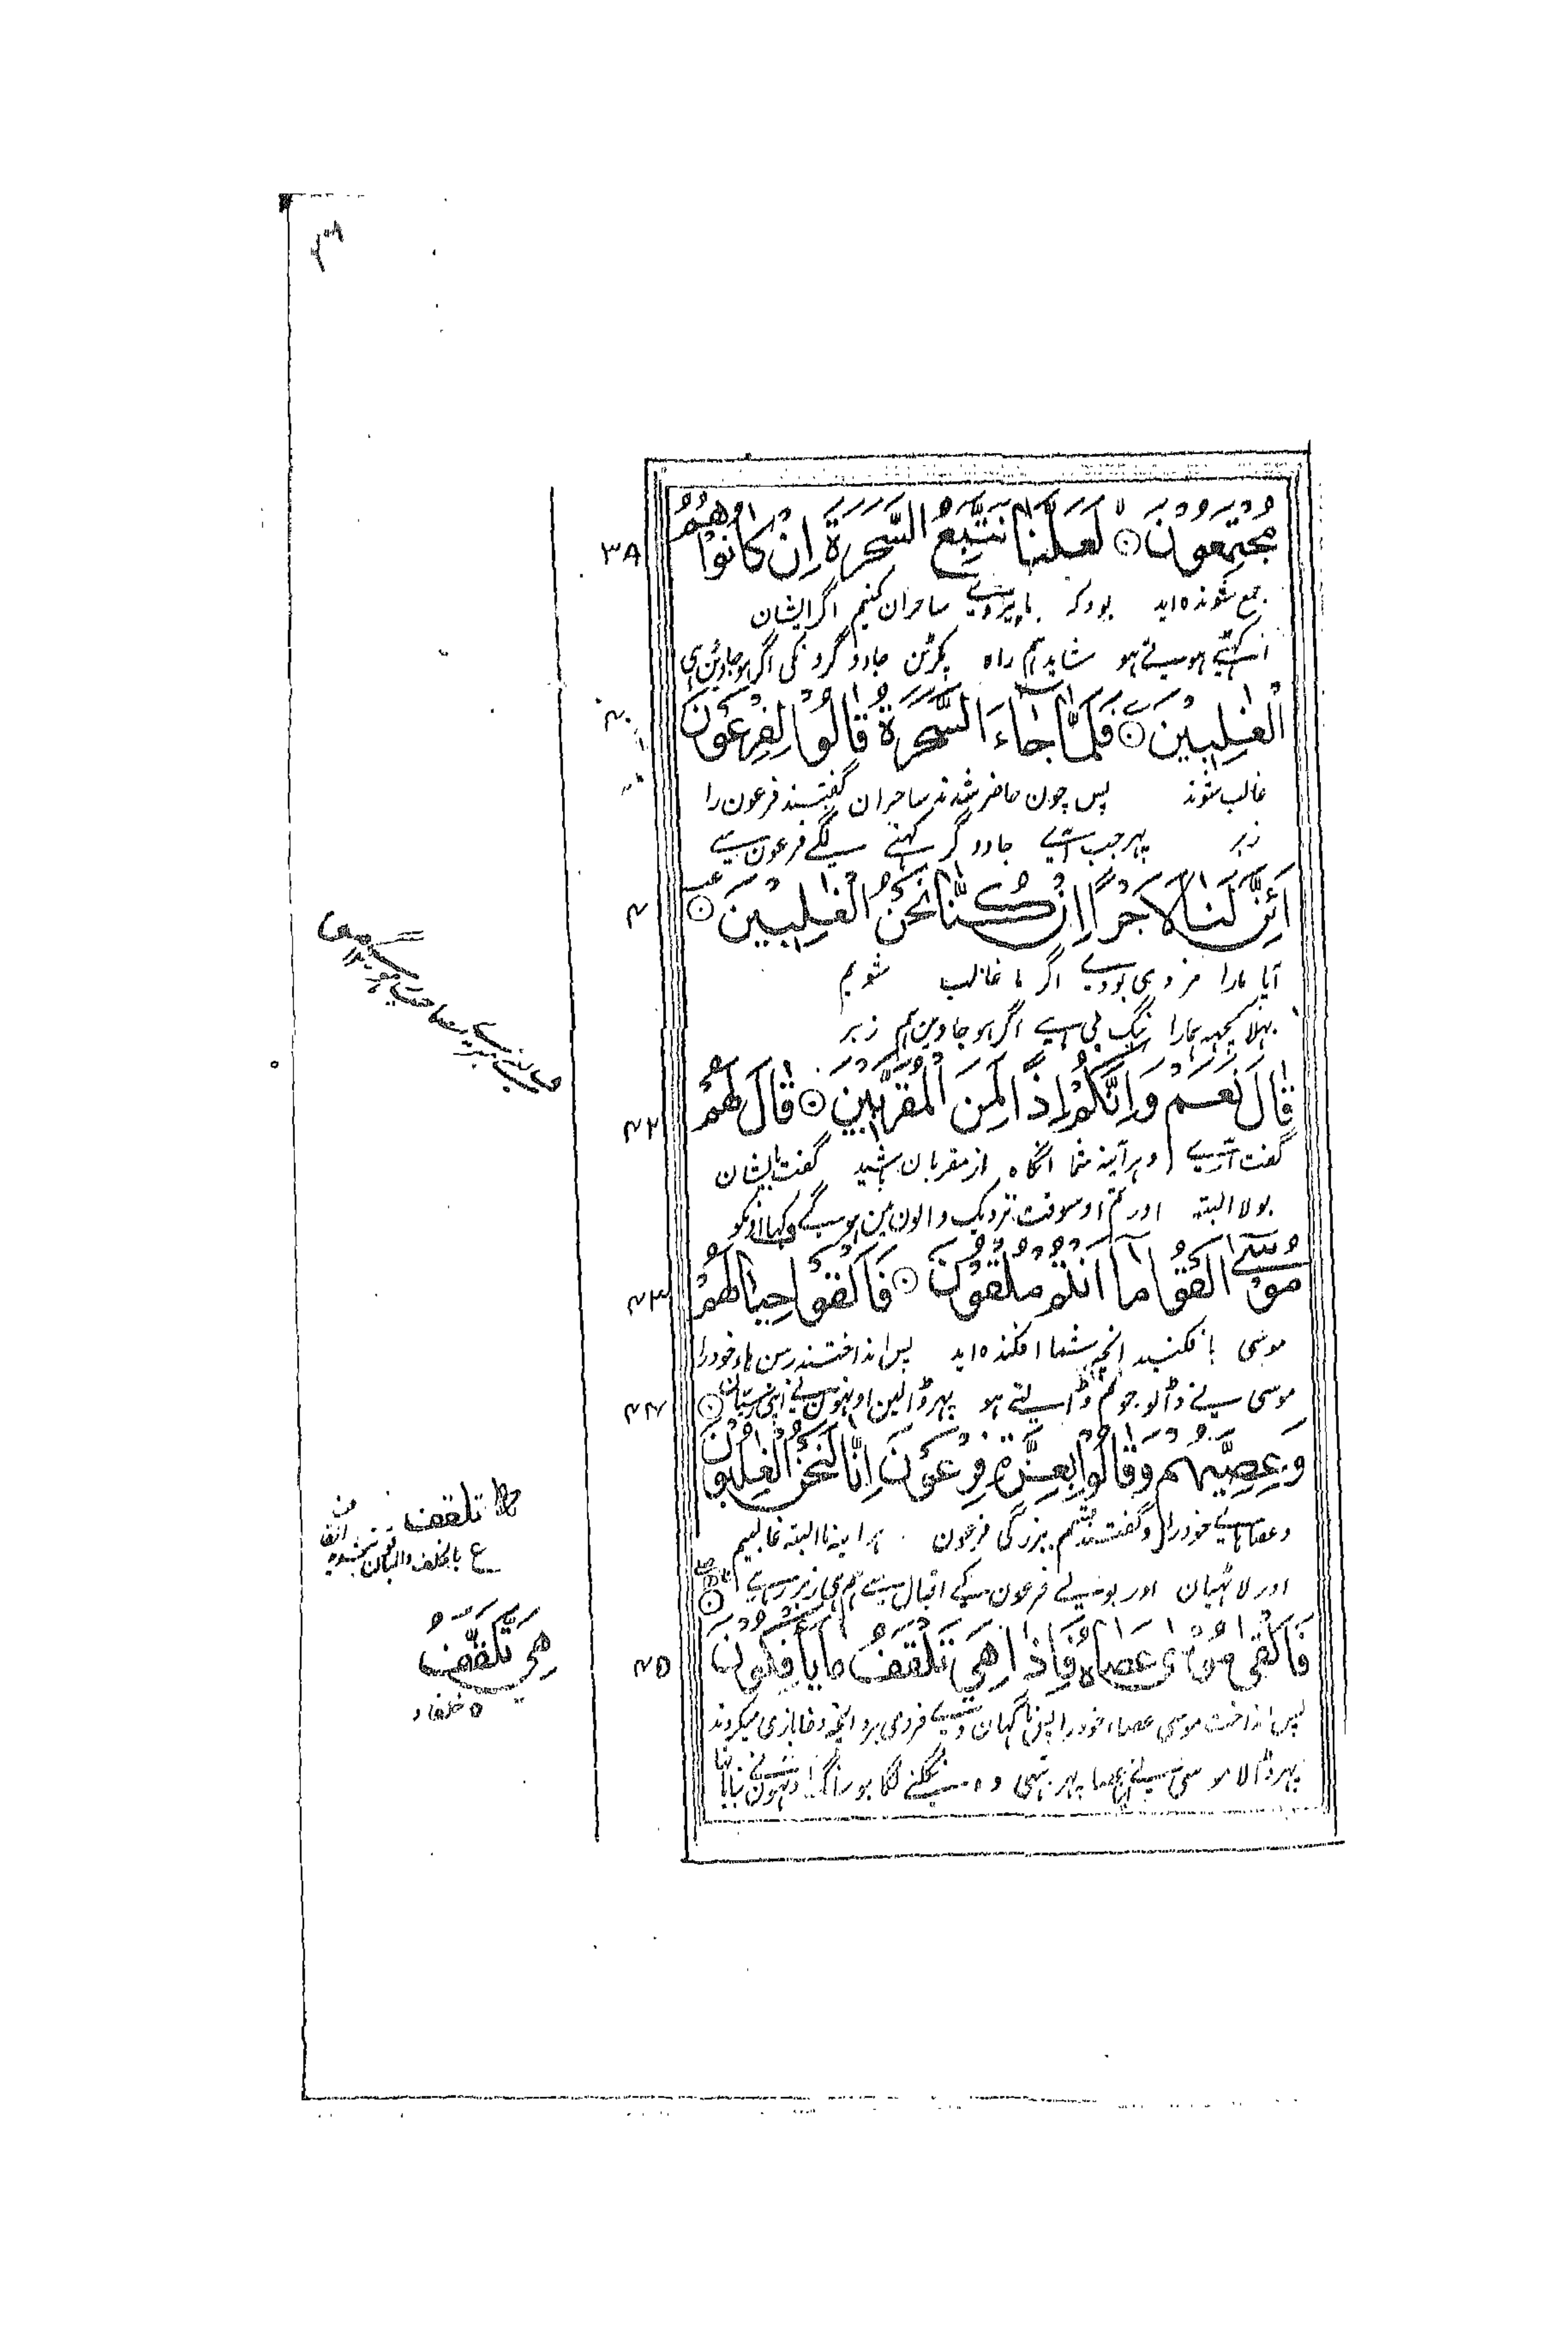 مُجْتَمِعُوْنَ ۝ لَعَلَّنَا نَتَّبِعُ السَّحَرَةَ اِنْ كَانُوْا هُمُ
جمع شونده اید بود که ما پیروی ساحران کنیم اگر ایشان
اکہتے ہوتے ہو شاید ہم راہ پکڑین جادو گرونکی اگر ہو جاوین وہی
الْغٰلِبِيْنَ ۝ فَلَمَّا جَآءَ السَّحَرَةُ قَالُوْا لِفِرْعَوْنَ
غالب شوند پس چون حاضر شدند ساحران گفتند فرعون را
زبر پہر جب آئے جادو گر کہنے لگے فرعون سے
اَئِنَّ لَنَا لَاَجْرًا اِنْ كُنَّا نَحْنُ الْغٰلِبِيْنَ ۝
آیا مارا مزدی بود اگر ما غالب شویم
بہلا کچہہ ہمارا نیگ بی ہے اگر ہو جاوین ہم زبر
قَالَ نَعَمْ وَاِنَّكُمْ اِذًا لَّمِنَ الْمُقَرَّبِيْنَ ۝ قَالَ لَهُمْ
گفت آری و هرآینه شما آنگاه از مقربان باشید گفت بایشان
بولا البتہ اور تم اوسوقت نزدیک والون مین ہوگے کہا اونکو
مُوْسٰٓى اَلْقُوْا مَآ اَنْتُمْ مُّلْقُوْنَ ۝ فَاَلْقَوْا حِبَالَهُمْ
موسی بافکنید آنچه شما افکنده اید پس انداختند رسن هاء خودرا
موسی نے ڈالو جو تم ڈالتے ہو پہر ڈالین اونہون نے اپنی رسیان
وَعِصِيَّهُمْ وَقَالُوْا بِعِزَّةِ فِرْعَوْنَ اِنَّا لَنَحْنُ الْغٰلِبُوْنَ
وعصاهای خودرا و گفتند قسم ببزرگی فرعون هراینه ما البته غالبیم
اور لاٹہیان اور بولے فرعون کے اقبال سے ہم ہی زبر رہے
فَاَلْقٰى مُوْسٰى عَصَاهُ فَاِذَا هِيَ تَلْقَفُ مَا يَاْفِكُوْنَ
پس انداخت موسی عصاء خودرا پس ناگهان وی فرو می برد آنچه دغابازی میکردند
پہر ڈالا موسی نے عصا پہر تبہی وہ نگلنے لگا جو سانگ اونہون نے بنایا تہا
۳۸
۴۲
۴۳
۴۴
۴۵
تلقف
هِيَ تَّلَقَّفُ